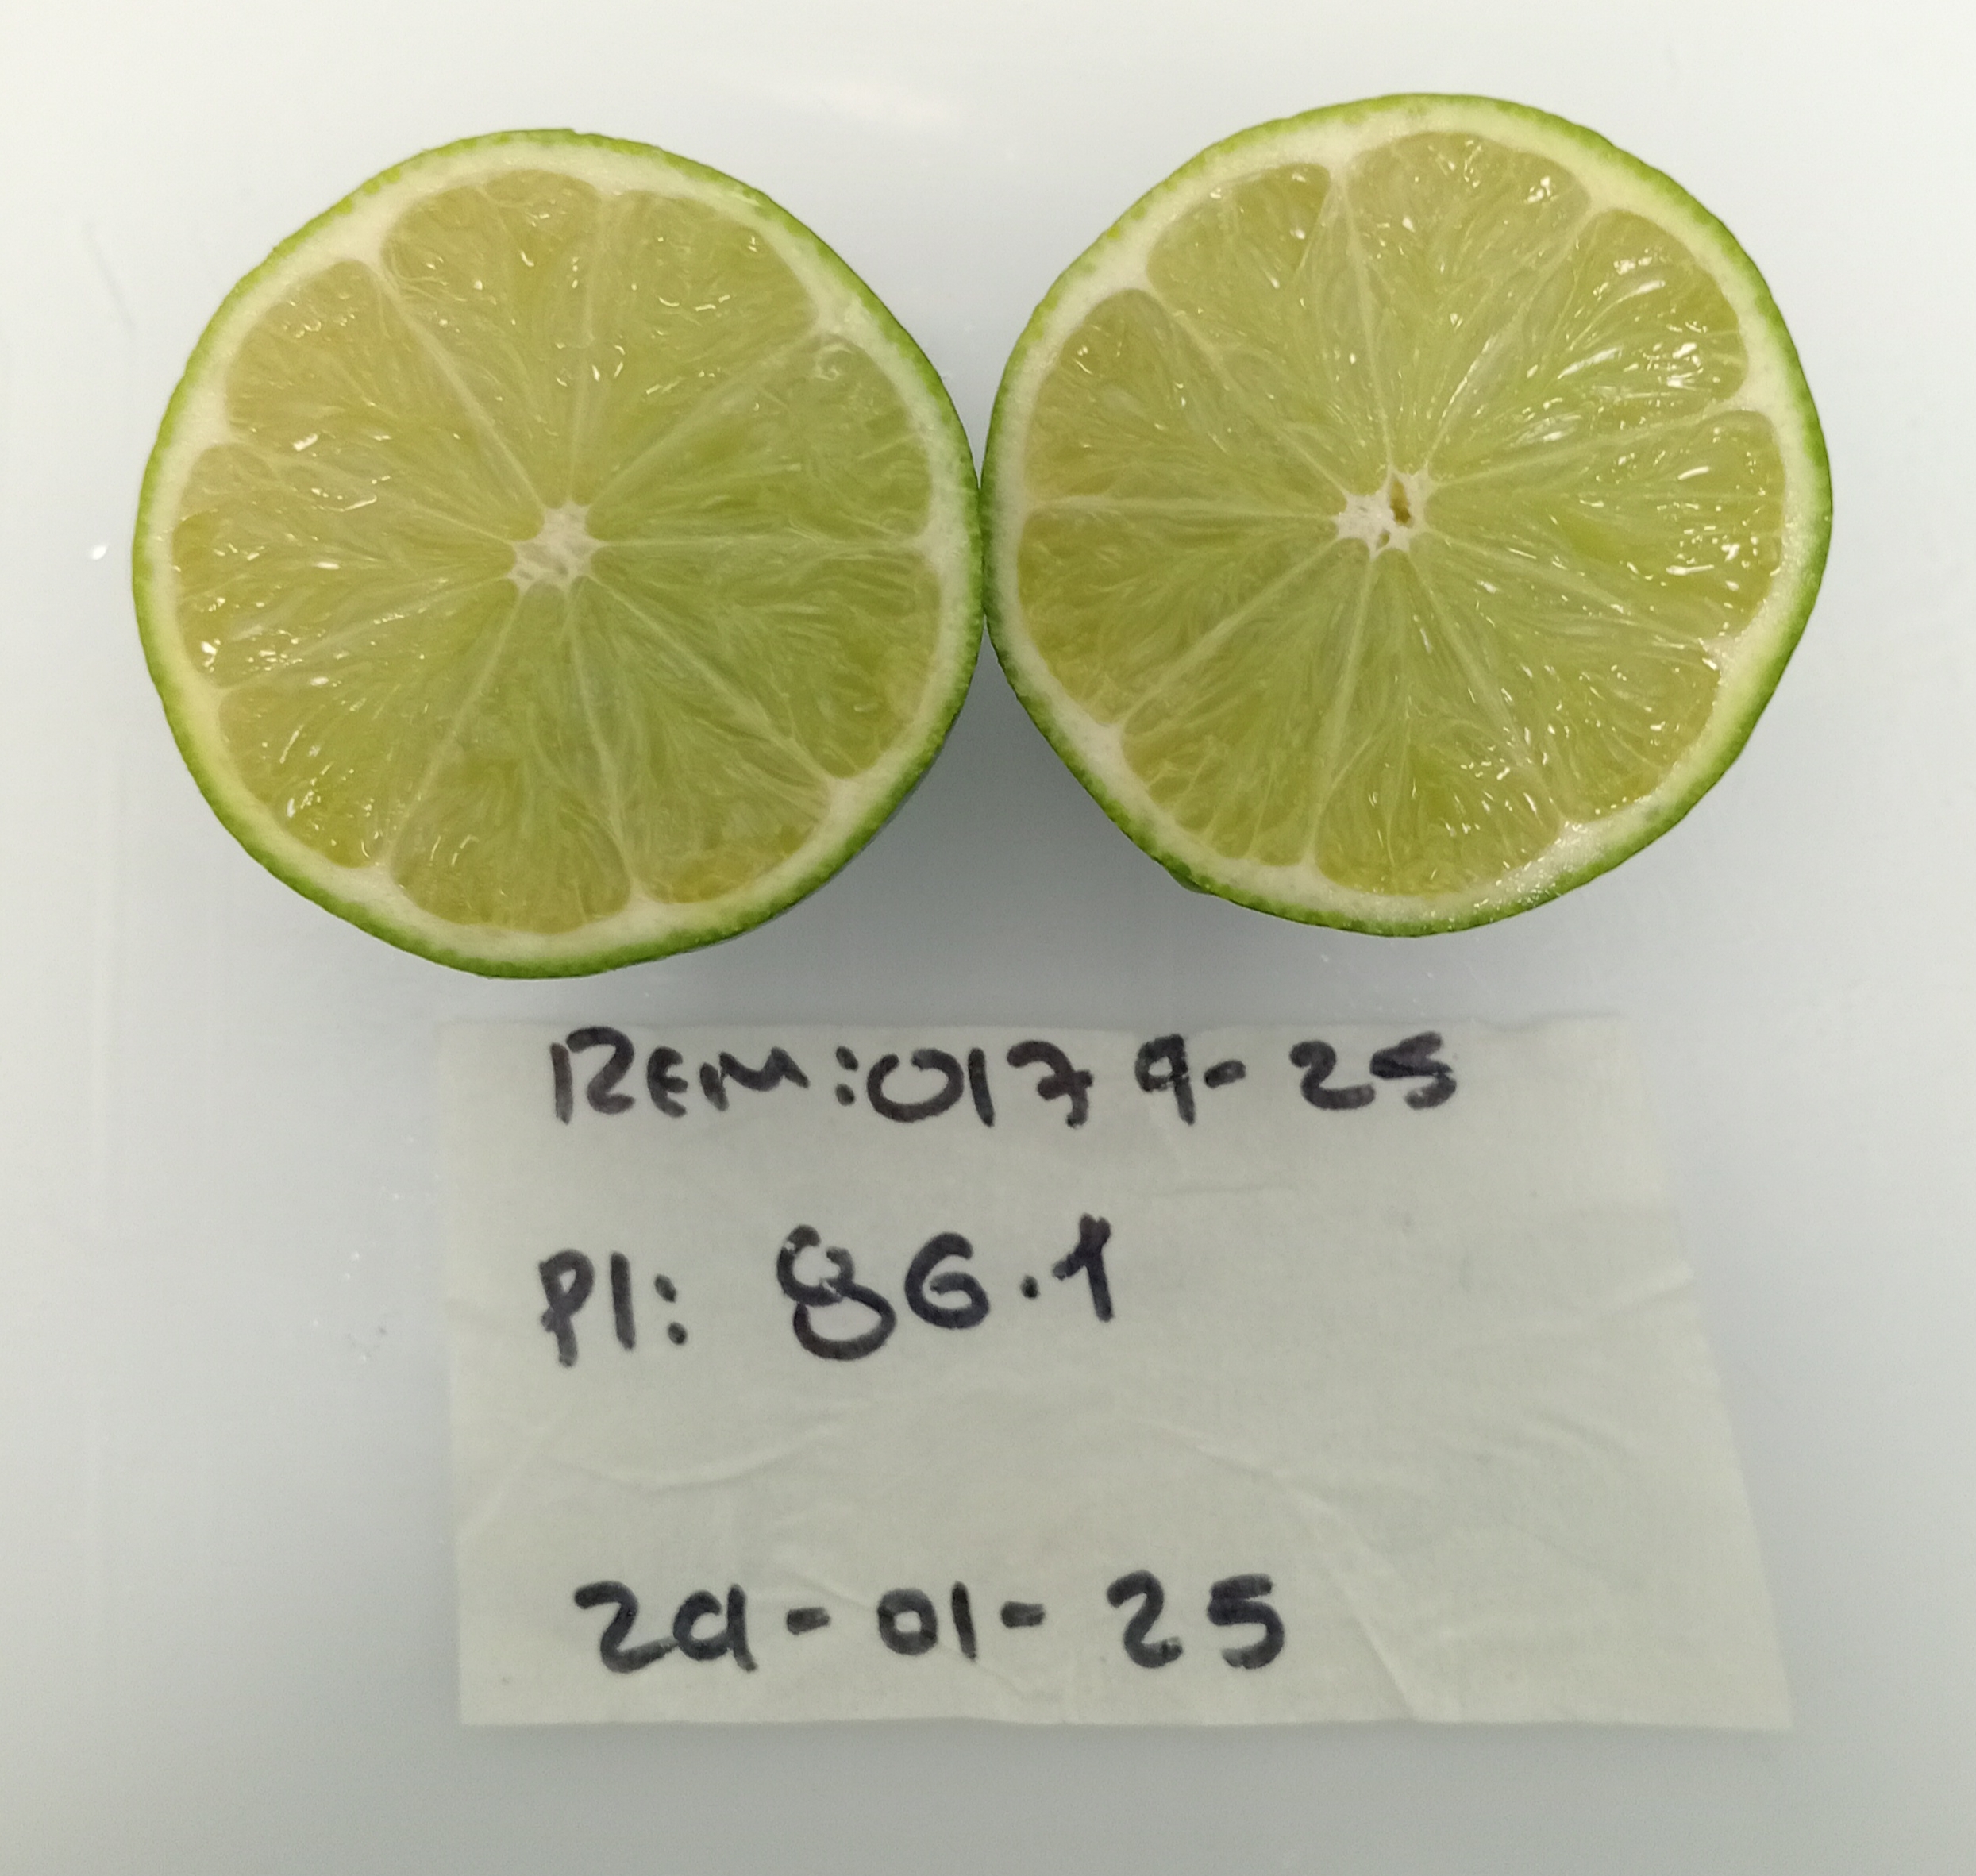 REM:0179-25
PI: 86.1
29-01-25